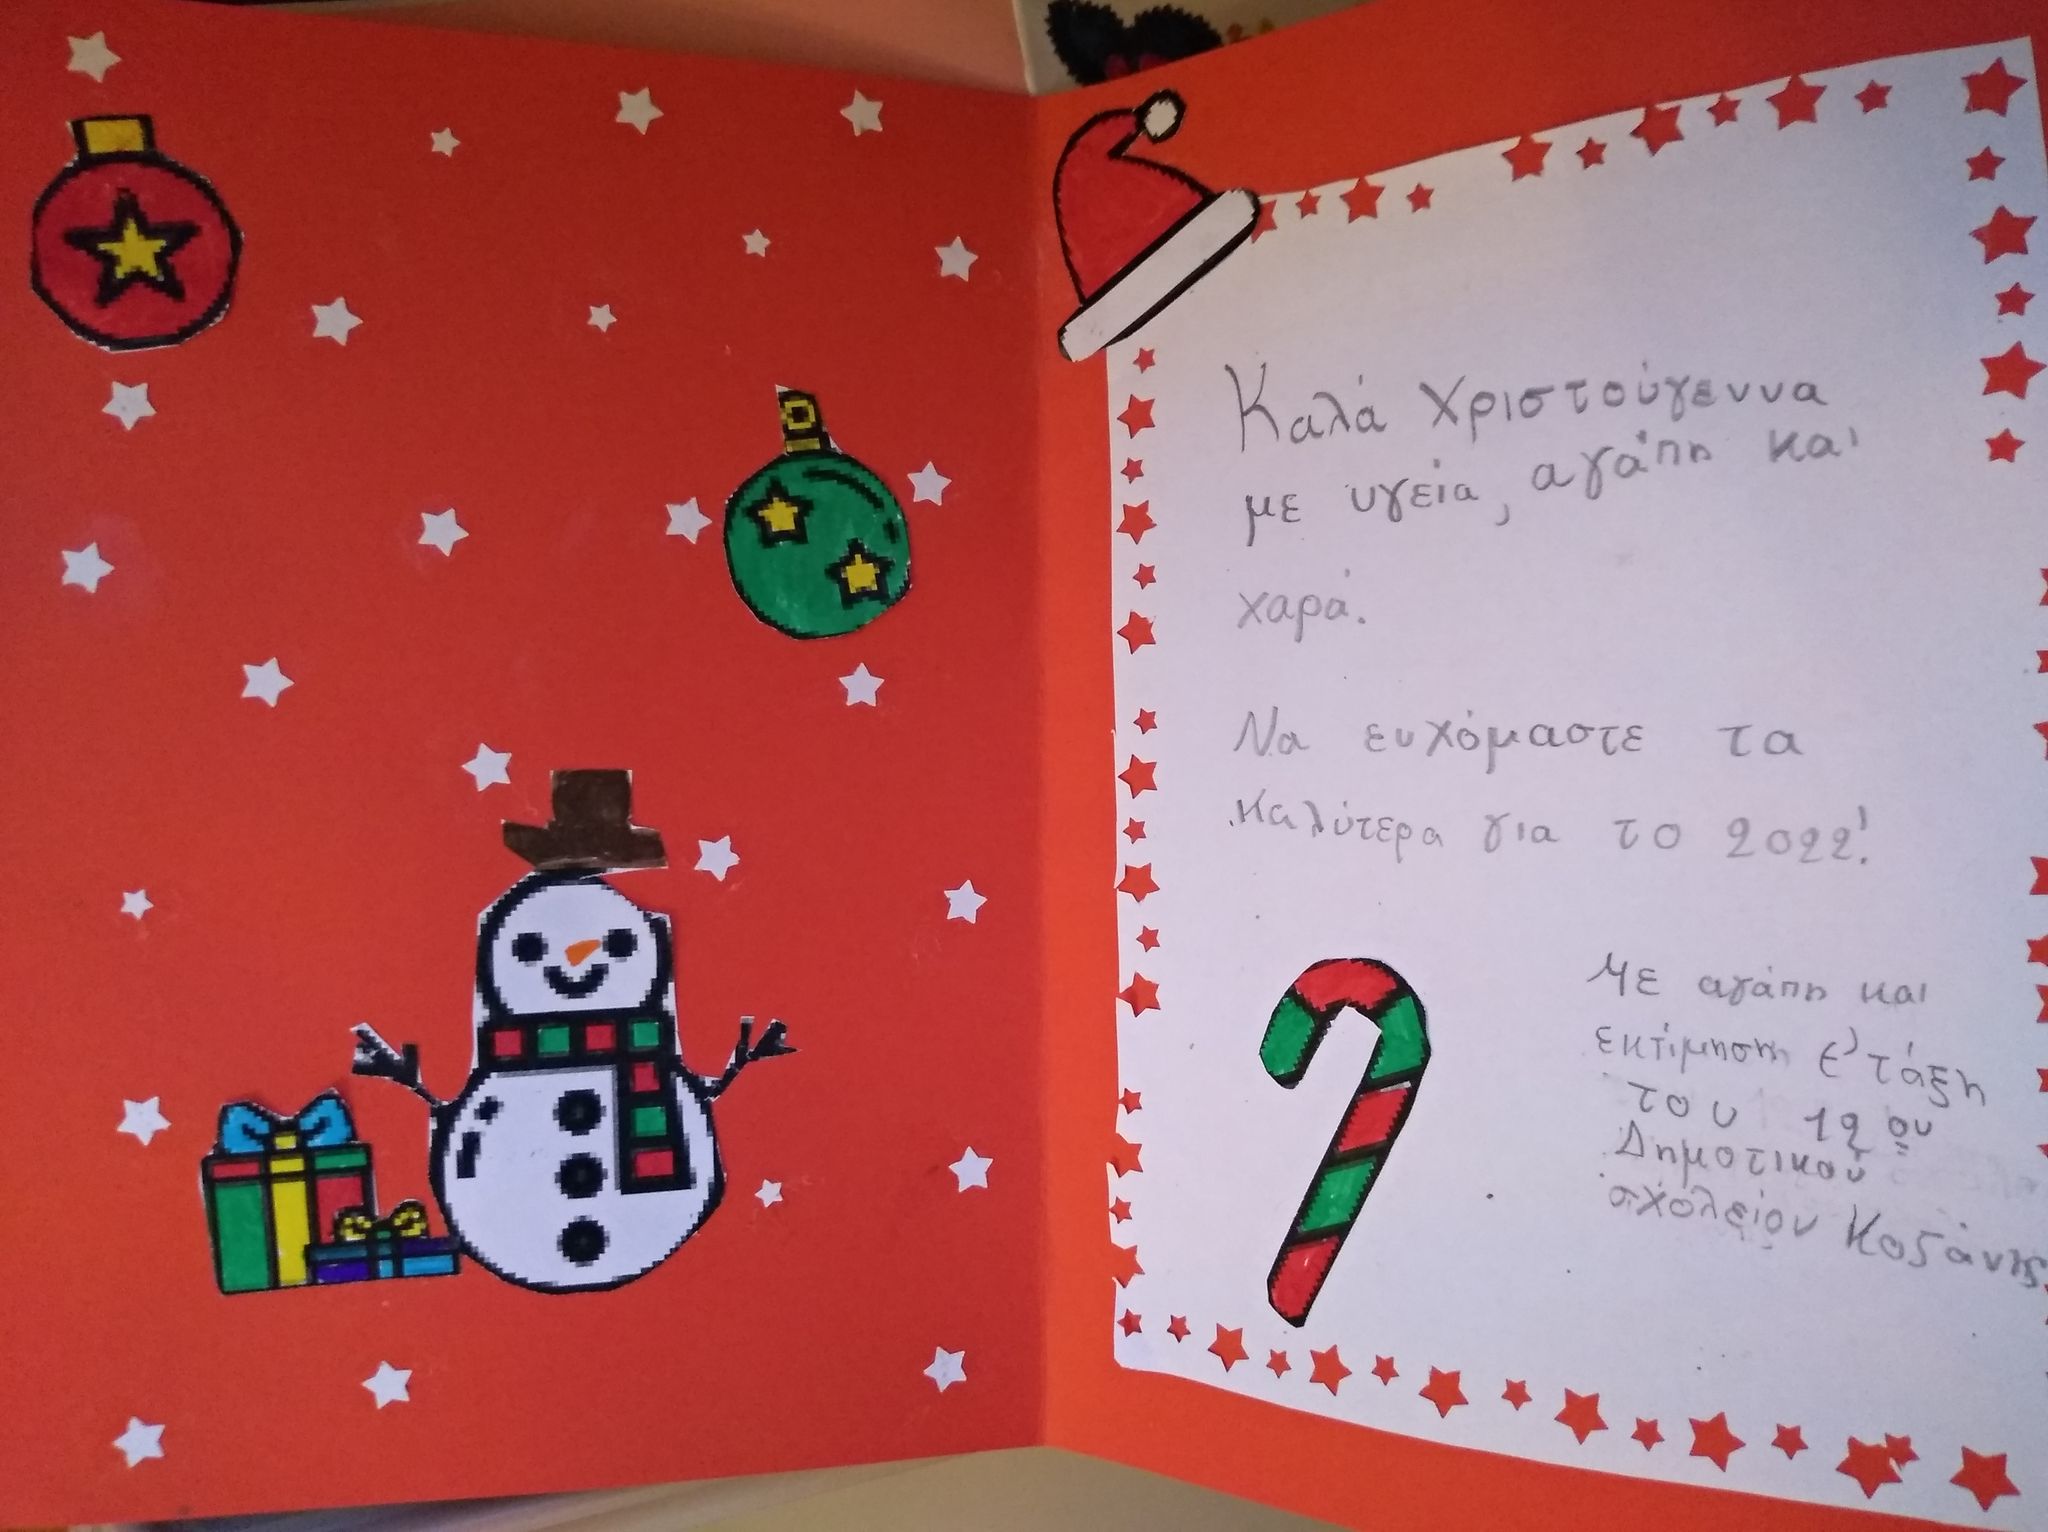 Καλά Χριστούγεννα
με υγεία, αγάπη και
χαρά.
Να ευχόμαστε τα
καλύτερα για το 2022!
Με αγάπη και
εκτίμηση ε' τάξη
του 12ου
Δημοτικού
σχολείου Κοζάνης